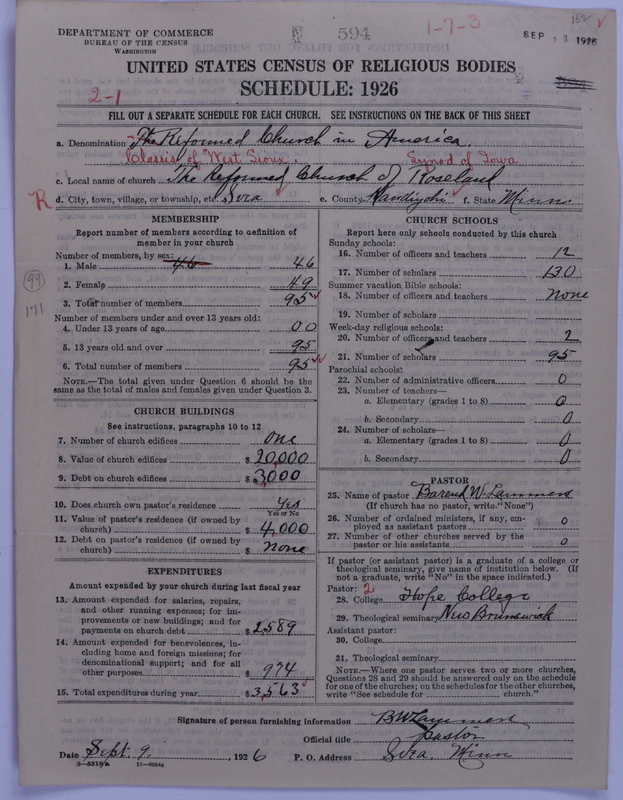 DEPARTMENT OF COMMERCE
BUREAU OF THE CENSUS
WASHINGTON
594
1-7-3
SEP 13 1926
UNITED STATES CENSUS OF RELIGIOUS BODIES
SCHEDULE: 1926
2-1
FILL OUT A SEPARATE SCHEDULE FOR EACH CHURCH. SEE INSTRUCTIONS ON THE BACK OF THIS SHEET
a. Denomination The Reformed Church in America.
Classis of West Sioux. Synod of Iowa
c. Local name of church The Reformed Church of Roseland
R d. City, town, village, or township, etc. Svea e. County Kandiyohi f. State Minn.
MEMBERSHIP
Report number of members according to definition of
member in your church
Number of members, by sex:
1. Male 46 46
2. Female 49
3. Total number of members 95
Number of members under and over 13 years old:
4. Under 13 years of age 00
5. 13 years old and over 95
6. Total number of members 95
NOTE.—The total given under Question 6 should be
same as the total of males and females given under Question 3.
99
171
CHURCH BUILDINGS
See instructions, paragraphs 10 to 12
7. Number of church edifices one
8. Value of church edifices $ 20,000
9. Debt on church edifices $ 3,000
10. Does church own pastor's residence Yes
Yes or No
11. Value of pastor's residence (if owned by
church) $ 4,000
12. Debt on pastor's residence (if owned by
church) $ none
EXPENDITURES
Amount expended by your church during last fiscal year
13. Amount expended for salaries, repairs,
and other running expenses; for im-
provements or new buildings; and for
payments on church debt $ 2589
14. Amount expended for benevolences, in-
cluding home and foreign missions; for
denominational support; and for all
other purposes $ 974
15. Total expenditures during year $ 3,563
CHURCH SCHOOLS
Report here only schools conducted by this church
Sunday schools:
16. Number of officers and teachers 12
17. Number of scholars 130
Summer vacation Bible schools:
18. Number of officers and teachers none
19. Number of scholars
Week-day religious schools:
20. Number of officers and teachers 2
21. Number of scholars 95
Parochial schools:
22. Number of administrative officers 0
23. Number of teachers—
a. Elementary (grades 1 to 8) 0
b. Secondary 0
24. Number of scholars—
a. Elementary (grades 1 to 8) 0
b. Secondary 0
PASTOR
25. Name of pastor Barend W. Lammers
(If church has no pastor, write "None")
26. Number of ordained ministers, if any, em-
ployed as assistant pastors 0
27. Number of other churches served by the
pastor or his assistants 0
If pastor (or assistant pastor) is a graduate of a college or
theological seminary, give name of institution below. (If
not a graduate, write "No" in the space indicated.)
Pastor: 2
28. College Hope College
29. Theological seminary New Brunswick
Assistant pastor:
30. College
31. Theological seminary
NOTE.—Where one pastor serves two or more churches,
Questions 28 and 29 should be answered only on the schedule
for one of the churches; on the schedules for the other churches,
write "See schedule for church."
Signature of person furnishing information B W Lammers
Official title pastor
Date Sept. 9, 1926 P. O. Address Svea, Minn